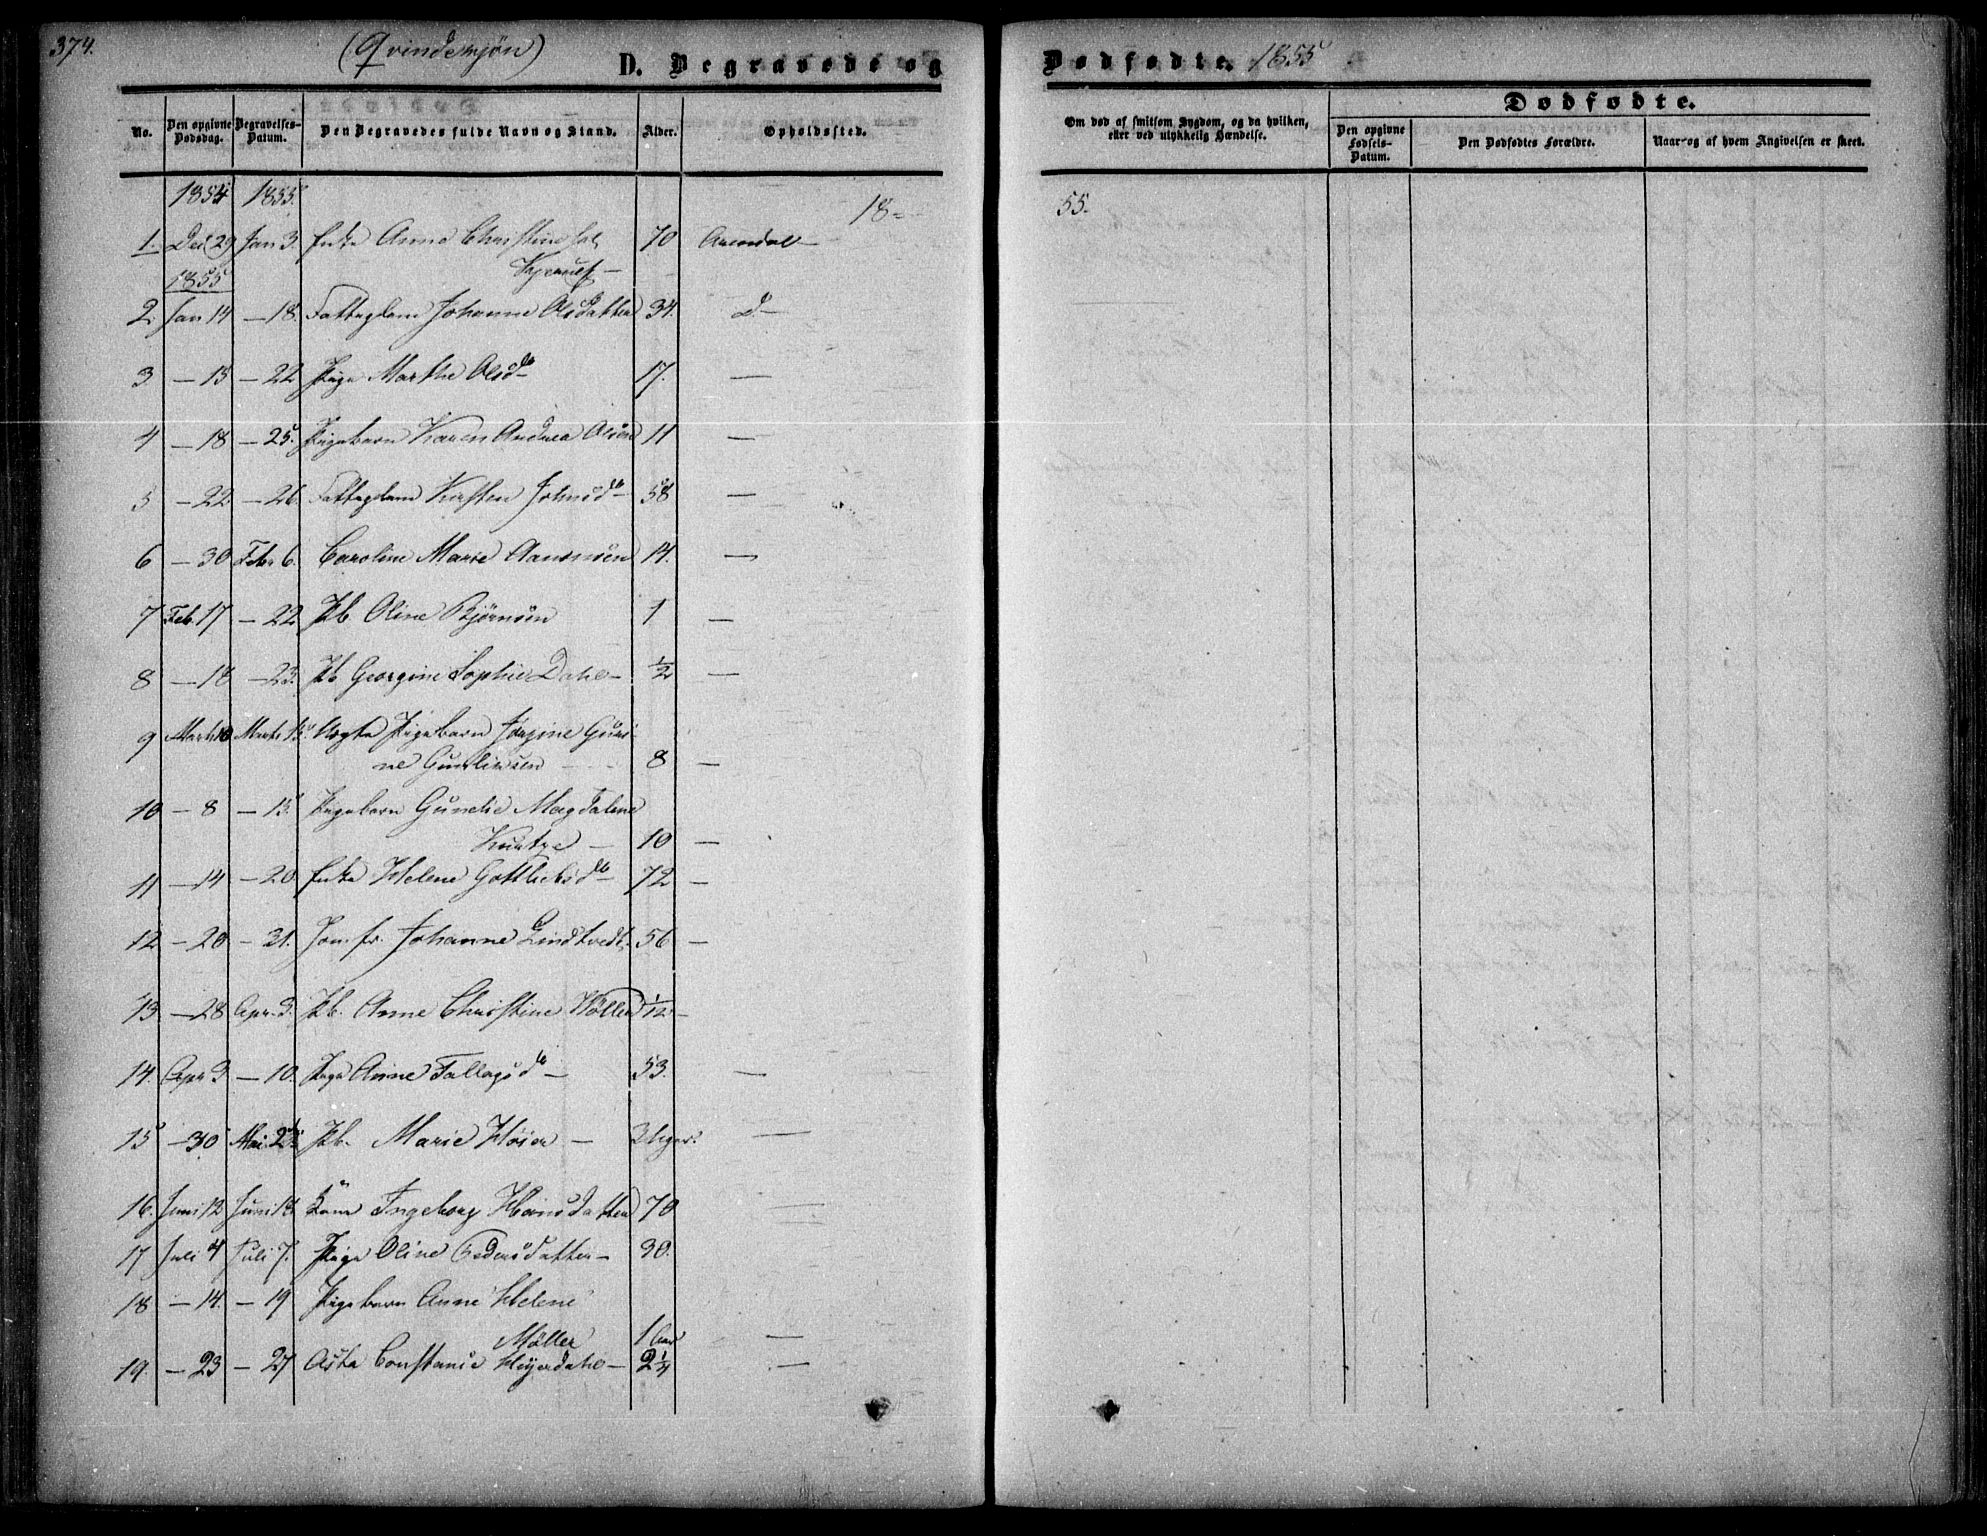 374.
(Qvindekjøn)
D. Begravede og Dødfødte. 1855
No.
Den opgivne Dødsdag.
Begravelses-Datum.
Den Begravedes fulde Navn og Stand.
Alder.
Opholdssted.
Om død af smitsom Sygdom, og da hvilken, eller ved ulykkelig Hændelse.
Dødfødte.
Den opgivne Fødsels-Datum.
Den Dødfødtes Forældre.
Naar og af hvem Angivelsen er skeet.
1854 1855.
18- 55.
1. Dec 29 Jan 3. Enke Anne Christine 70 Arendal
1855
2 Jan 14 — 18. Fattiglem Johanne Olsdatter 34. D—
3 — 15 — 22 Pige Marthe Olsd— 17. —
4 — 18 — 25. Pigebarn Karen Andrea Olsen 11 —
5 — 22 — 26. Fattiglem Kirsten Johnsd— 58 —
6 — 30 Febr 6. Caroline Marie Aanonsen 14. —
7 Feb. 17 — 22 Pb Oline Bjørnsen 1 —
8 — 18 — 23. Pb Georgine Sophie Dahl— 1/2 —
9 Marts 10 Marts 15 Uægte Pigebarn Jørgine Guri-
ne Gundersen 8 —
10 — 8 — 15. Pigebarn Gunelie Magdalene
10 —
11 — 14 — 20 Enke Helene Gottliebsd— 72 —
12 — 20 — 31. Jomfr. Johanne Lindtvedt 56 —
13 — 28 Apr. 3. Pb. Anne Christine Møller 1/12 —
14. Apr 3 — 10. Pige Anne Tallagsd— 53. —
15 — 30 Mai 2 Pb. Marie Høier — —
16. Juni 12 Juni 18 Kone Ingeborg Hansdatter 70 —
17 Juli 4 Juli 7. Pige Oline Pedersdatter — 30. —
18 — 14. — 19 Pigebarn Anne Helene
Møller 1 Aar —
19. — 23 — 27 Asta Constanse Heyerdahl — 2 1/4 —